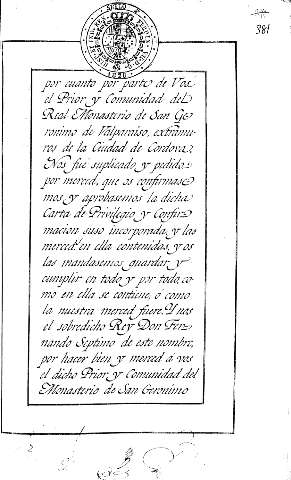 381
1830
por cuanto por parte de Vos
el Prior y Comunidad del
Real Monasterio de San Ge
ronimo de Valparaiso, extramu
ros de la Ciudad de Cordova,
Nos fue suplicado y pedido
por merced, que os confirmase
mos y aprobasemos la dicha
Carta de Privilegio y Confir
macion suso incorporada, y las
merced.s en ella contenidas, y os
las mandasemos guardar y
cumplir en todo y por todo, co
mo en ella se contiene, ó como
la nuestra merced fuere. Y nos
el sobredicho Rey Don Fer
nando Septimo de este nombre,
por hacer bien y merced á vos
el dicho Prior y Comunidad del
Monasterio de San Geronimo